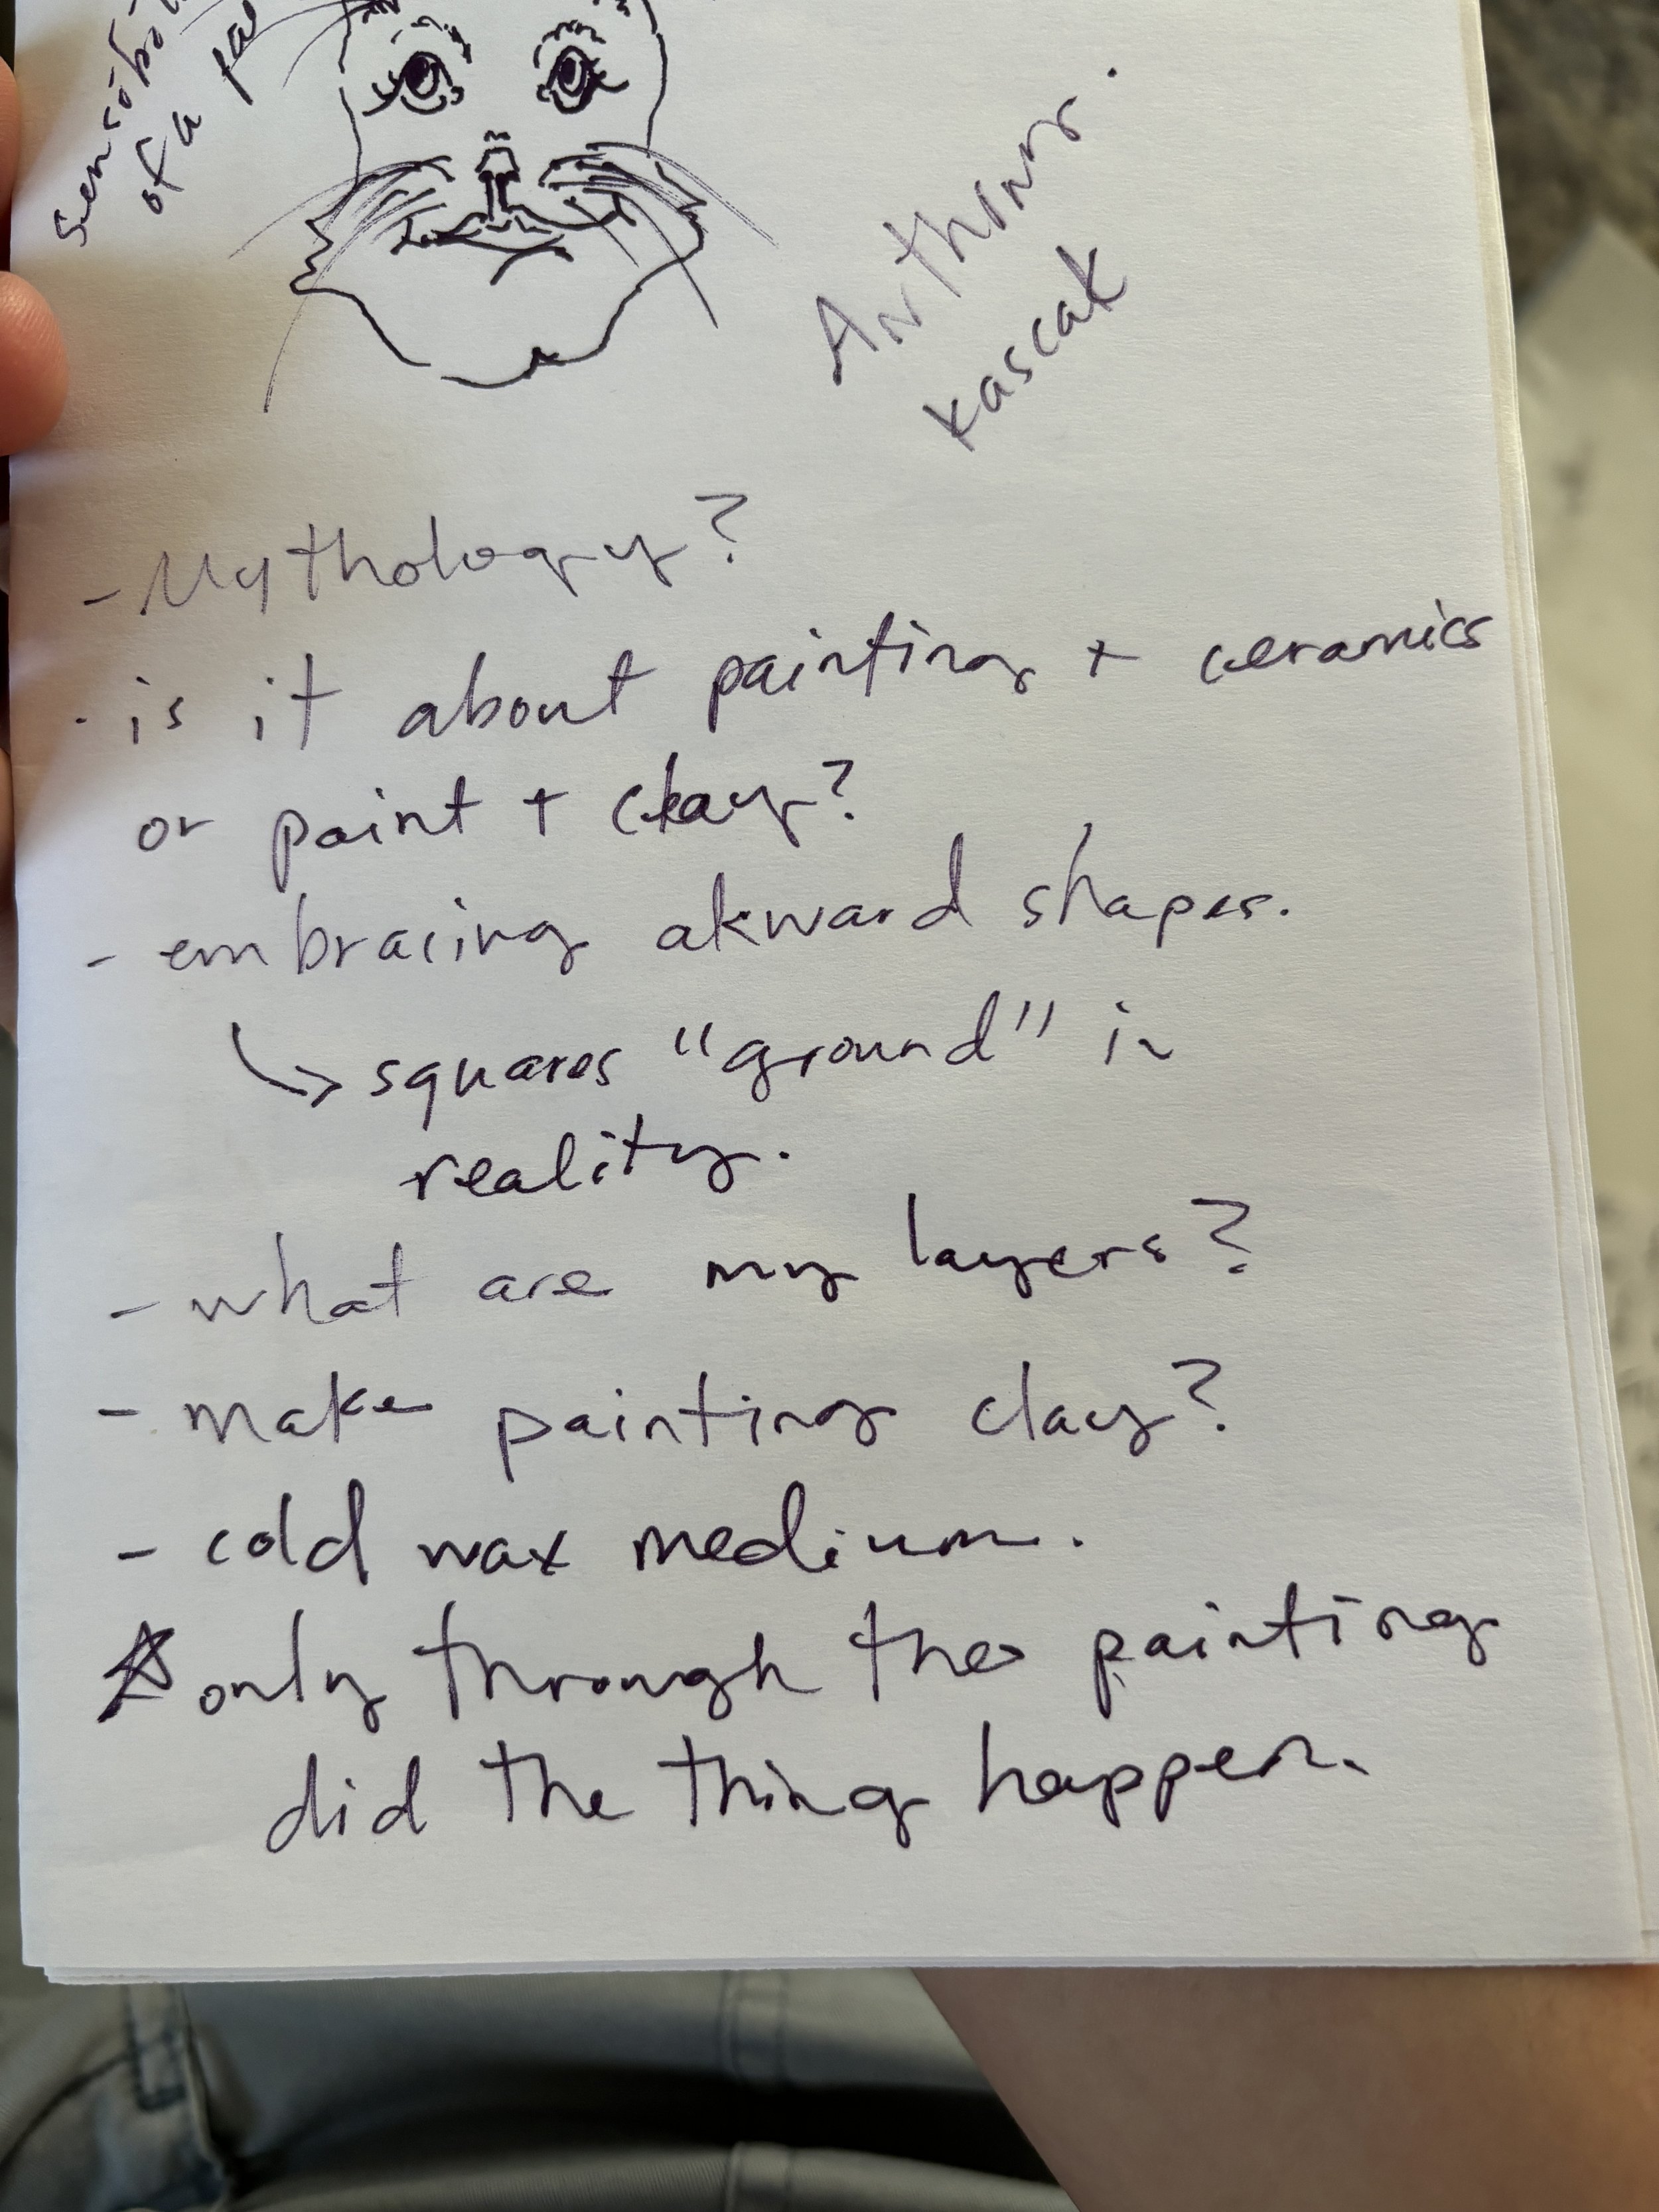 of a
kascak
- Mythology?
- is it about painting + ceramics
or paint + clay?
- embracing akward shapes.
↳ squares "ground" in
reality.
- what are my layers?
- make painting clay?
- cold wax medium.
☆ only through the painting
did the thing happen.